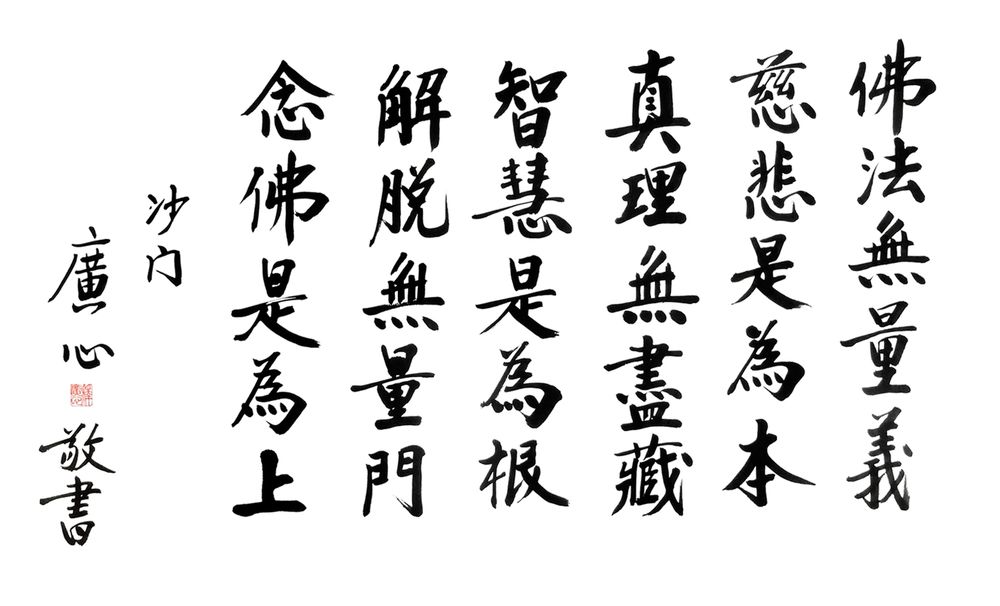 佛法無量義
慈悲是為本
真理無盡藏
智慧是為根
解脱無量門
念佛是為上
沙门
廣心
敬書